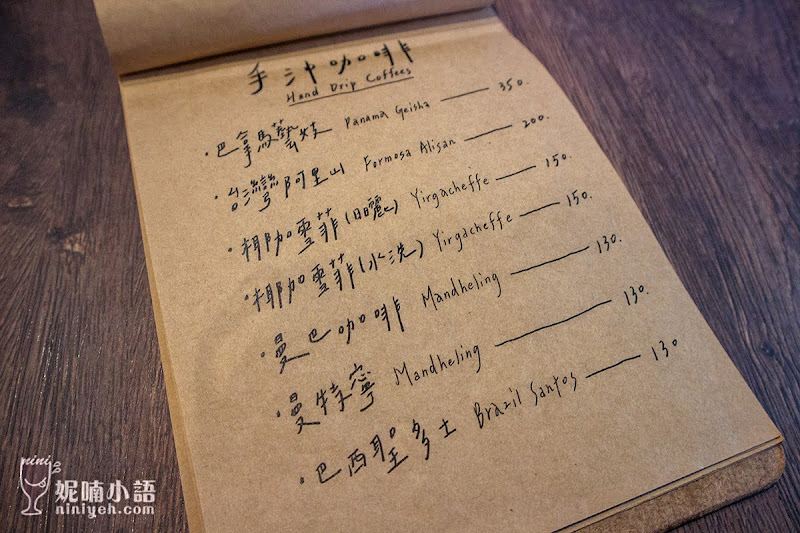 手沖咖啡
Hand Drip Coffees
·巴拿馬藝妓 Panama Geisha — 350.
·台灣阿里山 Formosa Alisan — 200.
·椰加雪菲(日曬) Yirgacheffe — 150.
·椰加雪菲(水洗) Yirgacheffe — 150.
·曼巴咖啡 Mandheling — 130.
·曼特寧 Mandheling — 130.
·巴西聖多士 Brazil Santos — 130
nini
妮喃小語
niniyeh.com